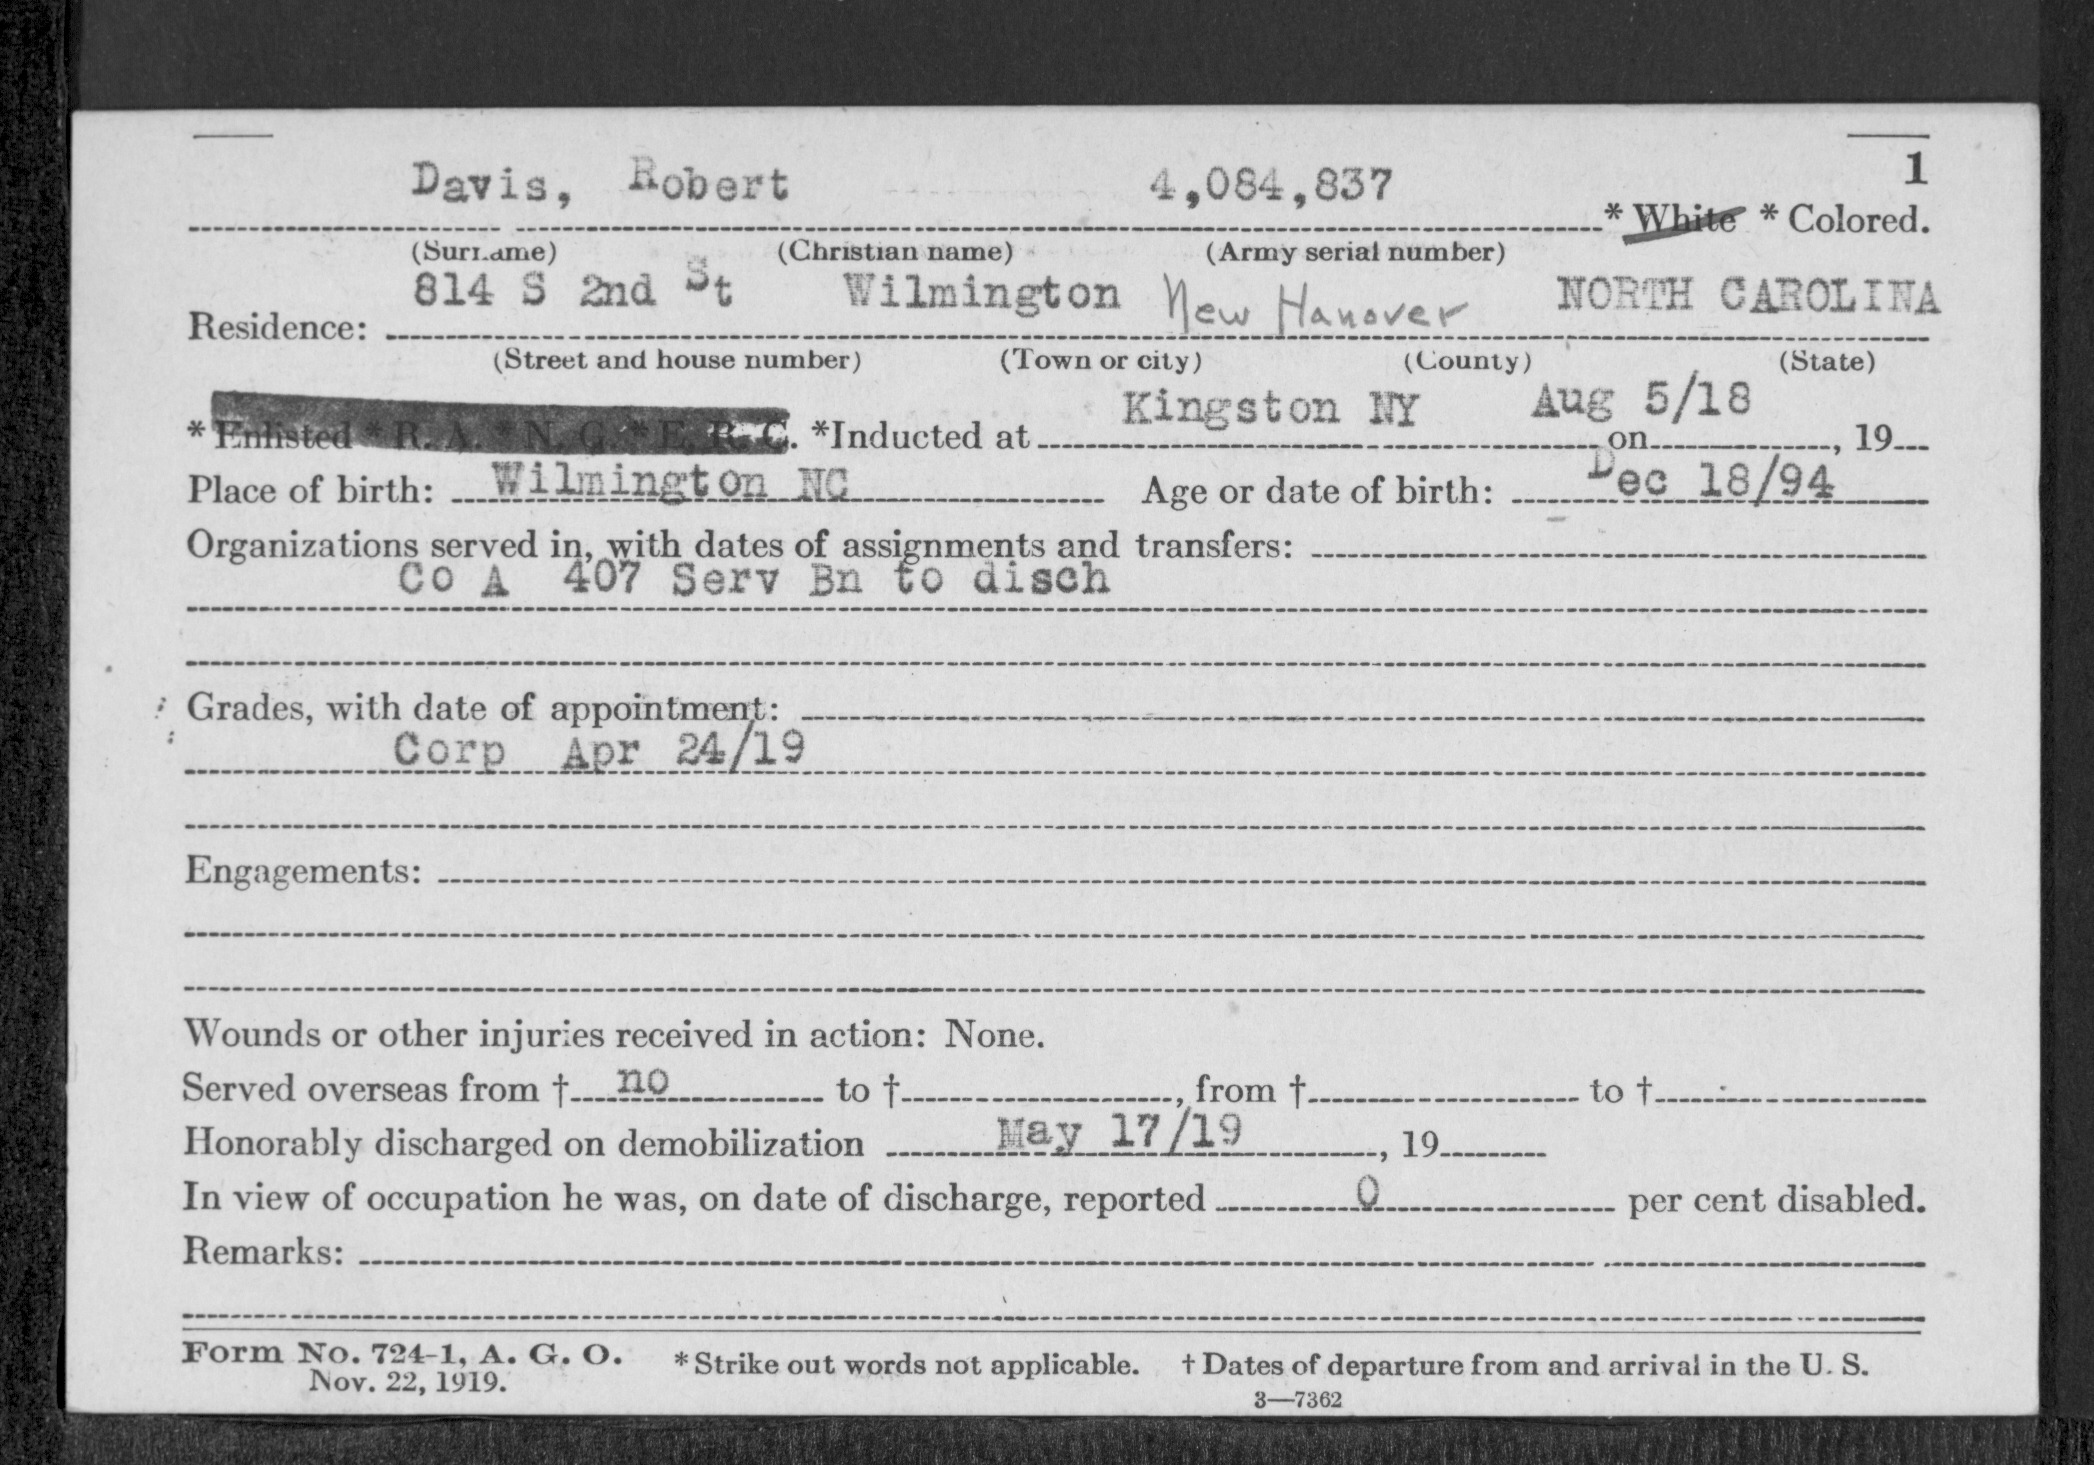 1
Davis, Robert 4,084,837 * White * Colored.
(Surname) (Christian name) (Army serial number)
814 S 2nd St Wilmington New Hanover NORTH CAROLINA
Residence:
(Street and house number) (Town or city) (County) (State)
Kingston NY Aug 5/18
* Enlisted * R. A. * N. G. * E. R. C. *Inducted at on , 19
Place of birth: Wilmington NC Age or date of birth: Dec 18/94
Organizations served in, with dates of assignments and transfers:
Co A 407 Serv Bn to disch
Grades, with date of appointment:
Corp Apr 24/19
Engagements:
Wounds or other injuries received in action: None.
Served overseas from † no to † , from † to †
Honorably discharged on demobilization May 17/19 , 19
In view of occupation he was, on date of discharge, reported 0 per cent disabled.
Remarks:
Form No. 724-1, A. G. O. * Strike out words not applicable. † Dates of departure from and arrival in the U. S.
Nov. 22, 1919.
3—7362